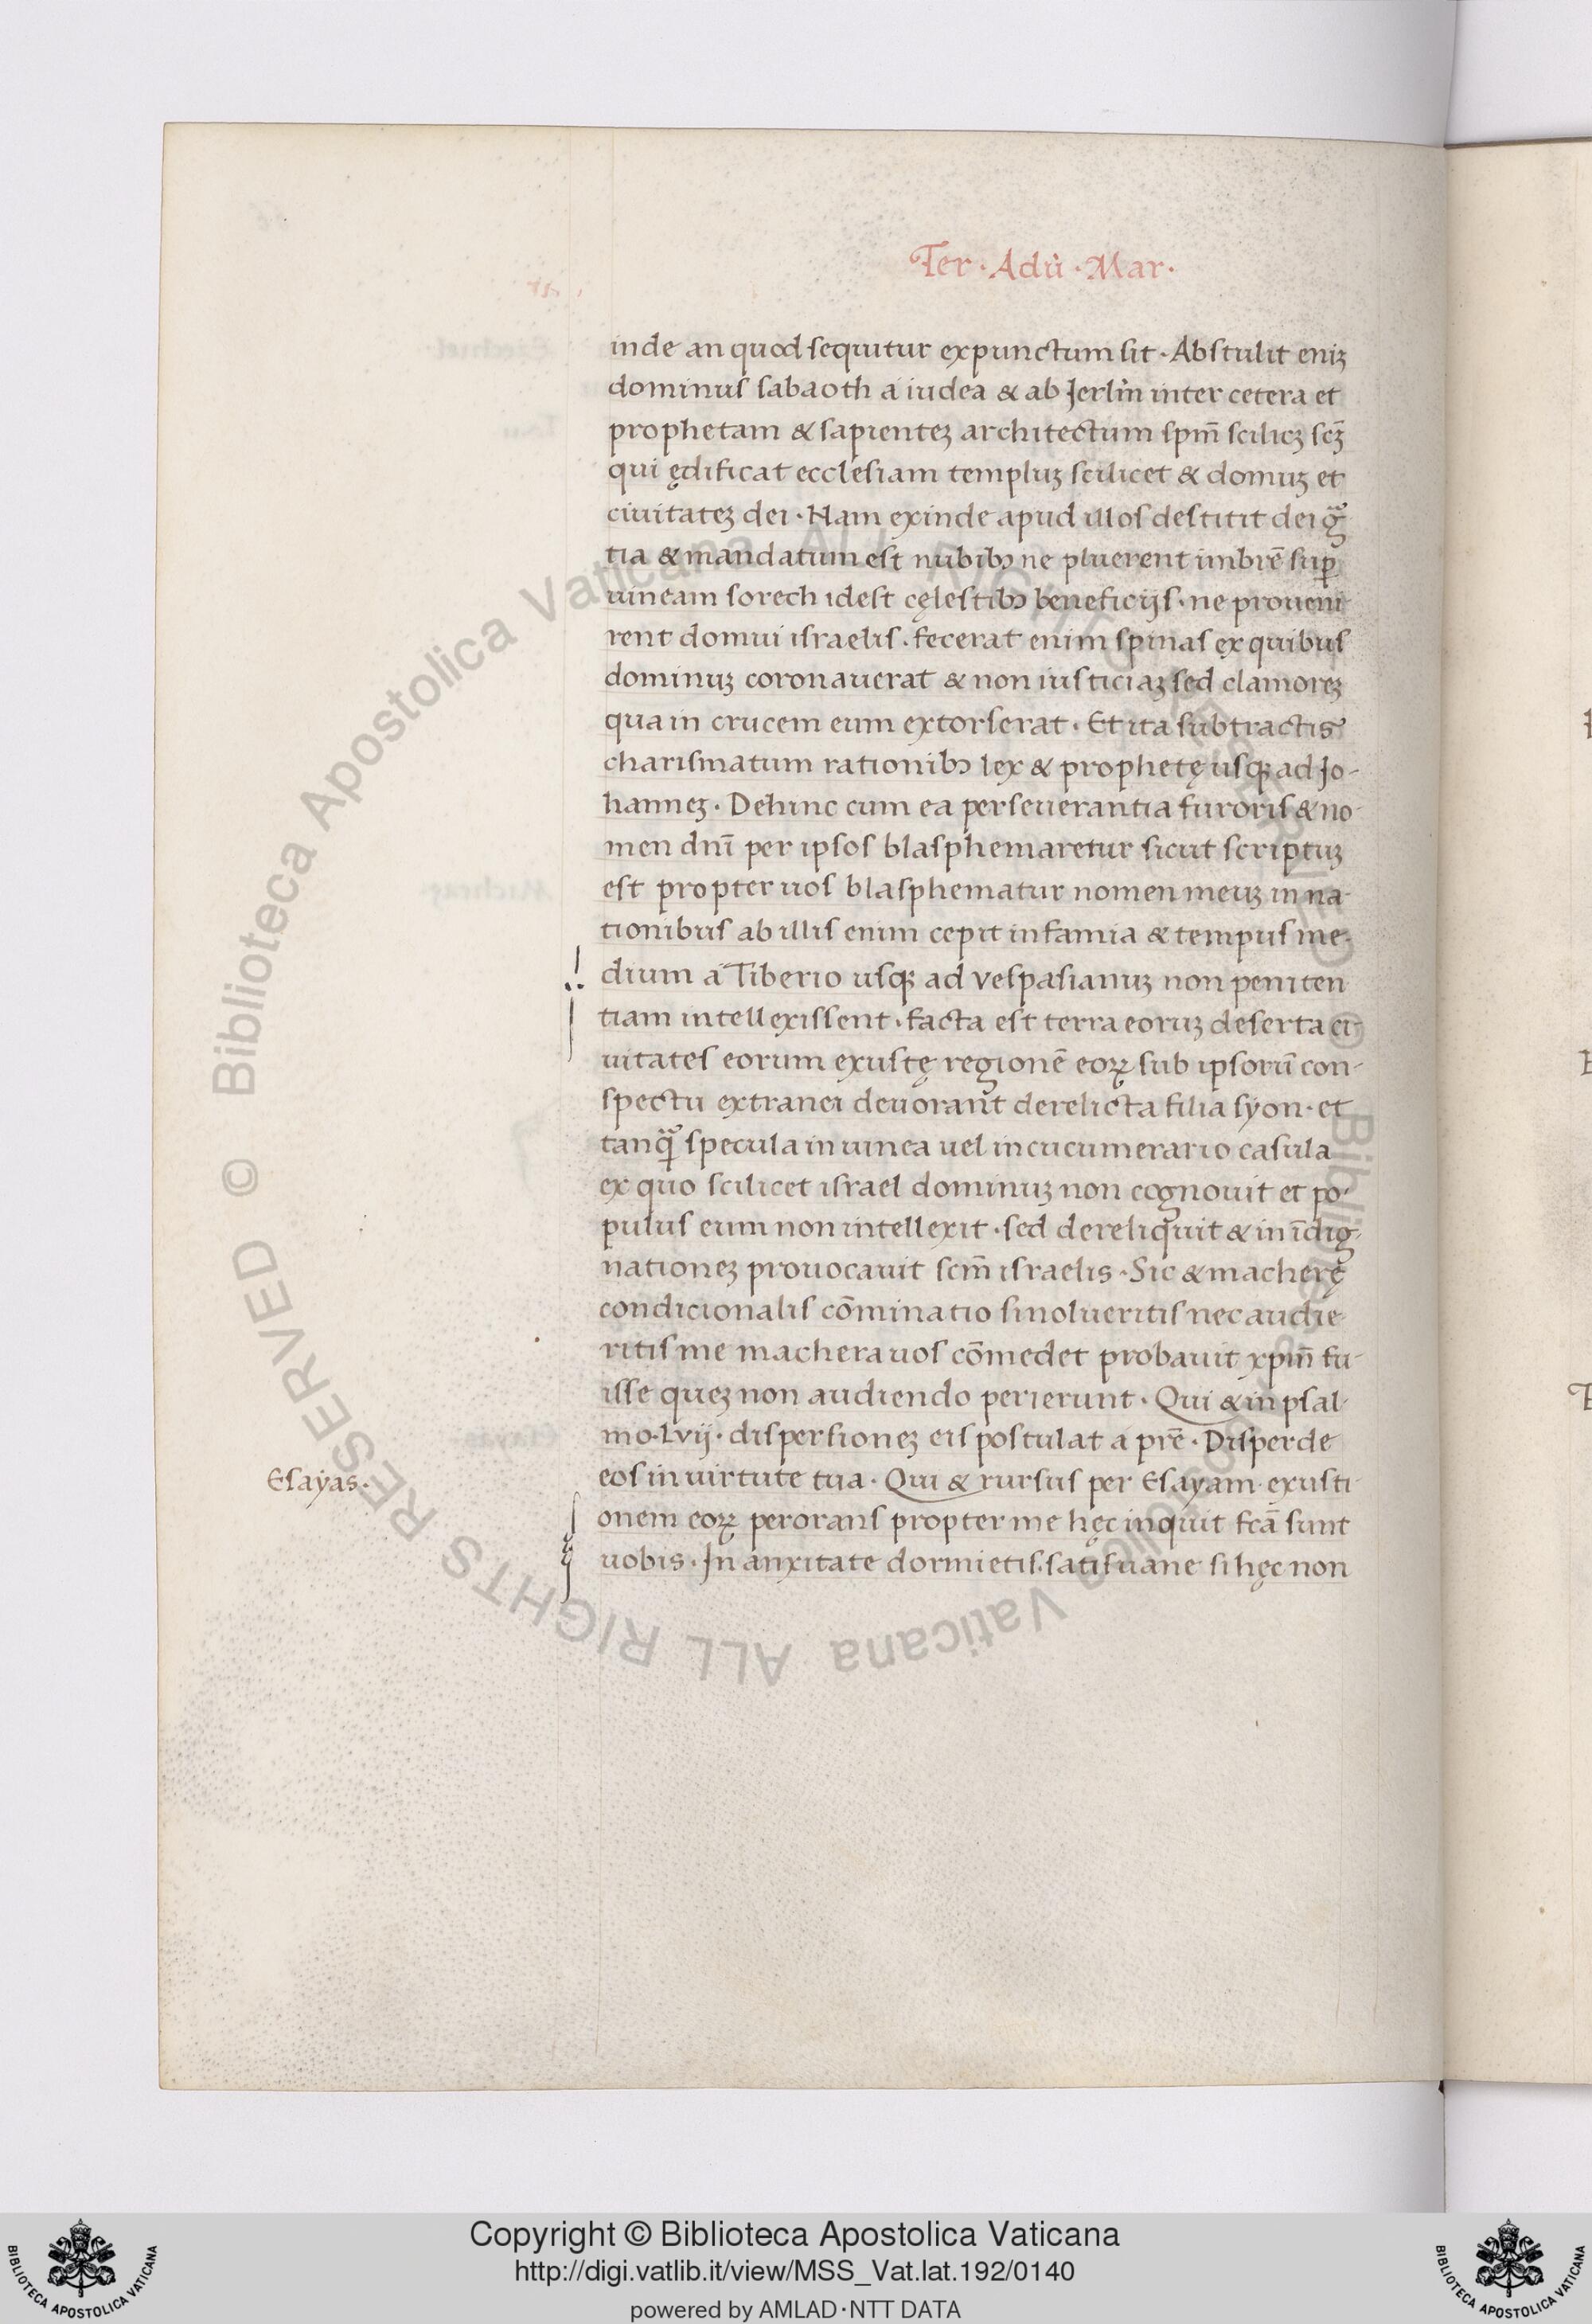 Ter · Adū · Mar ·
inde an quod sequitur expunctum sit · Abstulit eniꝫ
dominus sabaoth a iudea & ab Jerl̄m inter cetera et
prophetam & sapienteꝫ architectum sp̄m scilicꝫ sc̄ꝫ
qui ędificat ecclesiam templuꝫ scilicet & domuꝫ et
ciuitateꝫ dei · Nam exinde apud illos destitit dei gͣ
tia & mandatum est nubibꝯ ne pluerent imbrē suꝑ
uineam sorech idest cęlestibꝯ beneficijs · ne proueni
rent domui israelis · fecerat enim spinas ex quibus
dominuꝫ coronauerat & non iusticiaꝫ sed clamoreꝫ
qua in crucem eum extorserat · Et ita subtractis
charismatum rationibꝯ lex & prophetę usqꝫ ad Jo-
hanneꝫ · Dehinc cum ea perseuerantia furoris & no-
men dn̄i per ipsos blasphemaretur sicut scriptuꝫ
est propter uos blasphematur nomen meuꝫ in na-
tionibus ab illis enim cepit infamia & tempus me-
dium a Tiberio usqꝫ ad vespasianuꝫ non peniten
tiam intellexissent · facta est terra eoruꝫ deserta ci-
uitates eorum exustę regionē eoꝝ sub ipsorū con-
spectu extranei deuorant derelicta filia syon · et
tanqͣ̄ specula in uinea uel in cucumerario casula
ex quo scilicet israel dominuꝫ non cognouit et po-
pulus eum non intellexit · sed dereliquit & in īdig-
nationeꝫ prouocauit scm̄ israelis · Sic & macherę
condicionalis cōminatio si nolueritis nec audie-
ritis me machera uos cōmedet probauit xpm̄ fu-
isse queꝫ non audiendo perierunt · Qui & in psal-
mo · Lvij · dispersioneꝫ eis postulat a pr̄e · Disperde
eos in uirtute tua · Qui & rursus per Esayam · exusti
Esaÿas ·
onem eoꝝ perorans propter me hęc inquit fcā sunt
uobis · In anxitate dormietis · satis uane si hęc non
Copyright © Biblioteca Apostolica Vaticana
http://digi.vatlib.it/view/MSS_Vat.lat.192/0140
powered by AMLAD·NTT DATA
BIBLIOTECA APOSTOLICA VATICANA
BIBLIOTECA APOSTOLICA VATICANA
© Biblioteca Apostolica Vaticana ALL RIGHTS RESERVED
© Biblioteca Apostolica Vaticana ALL RIGHTS RESERVED